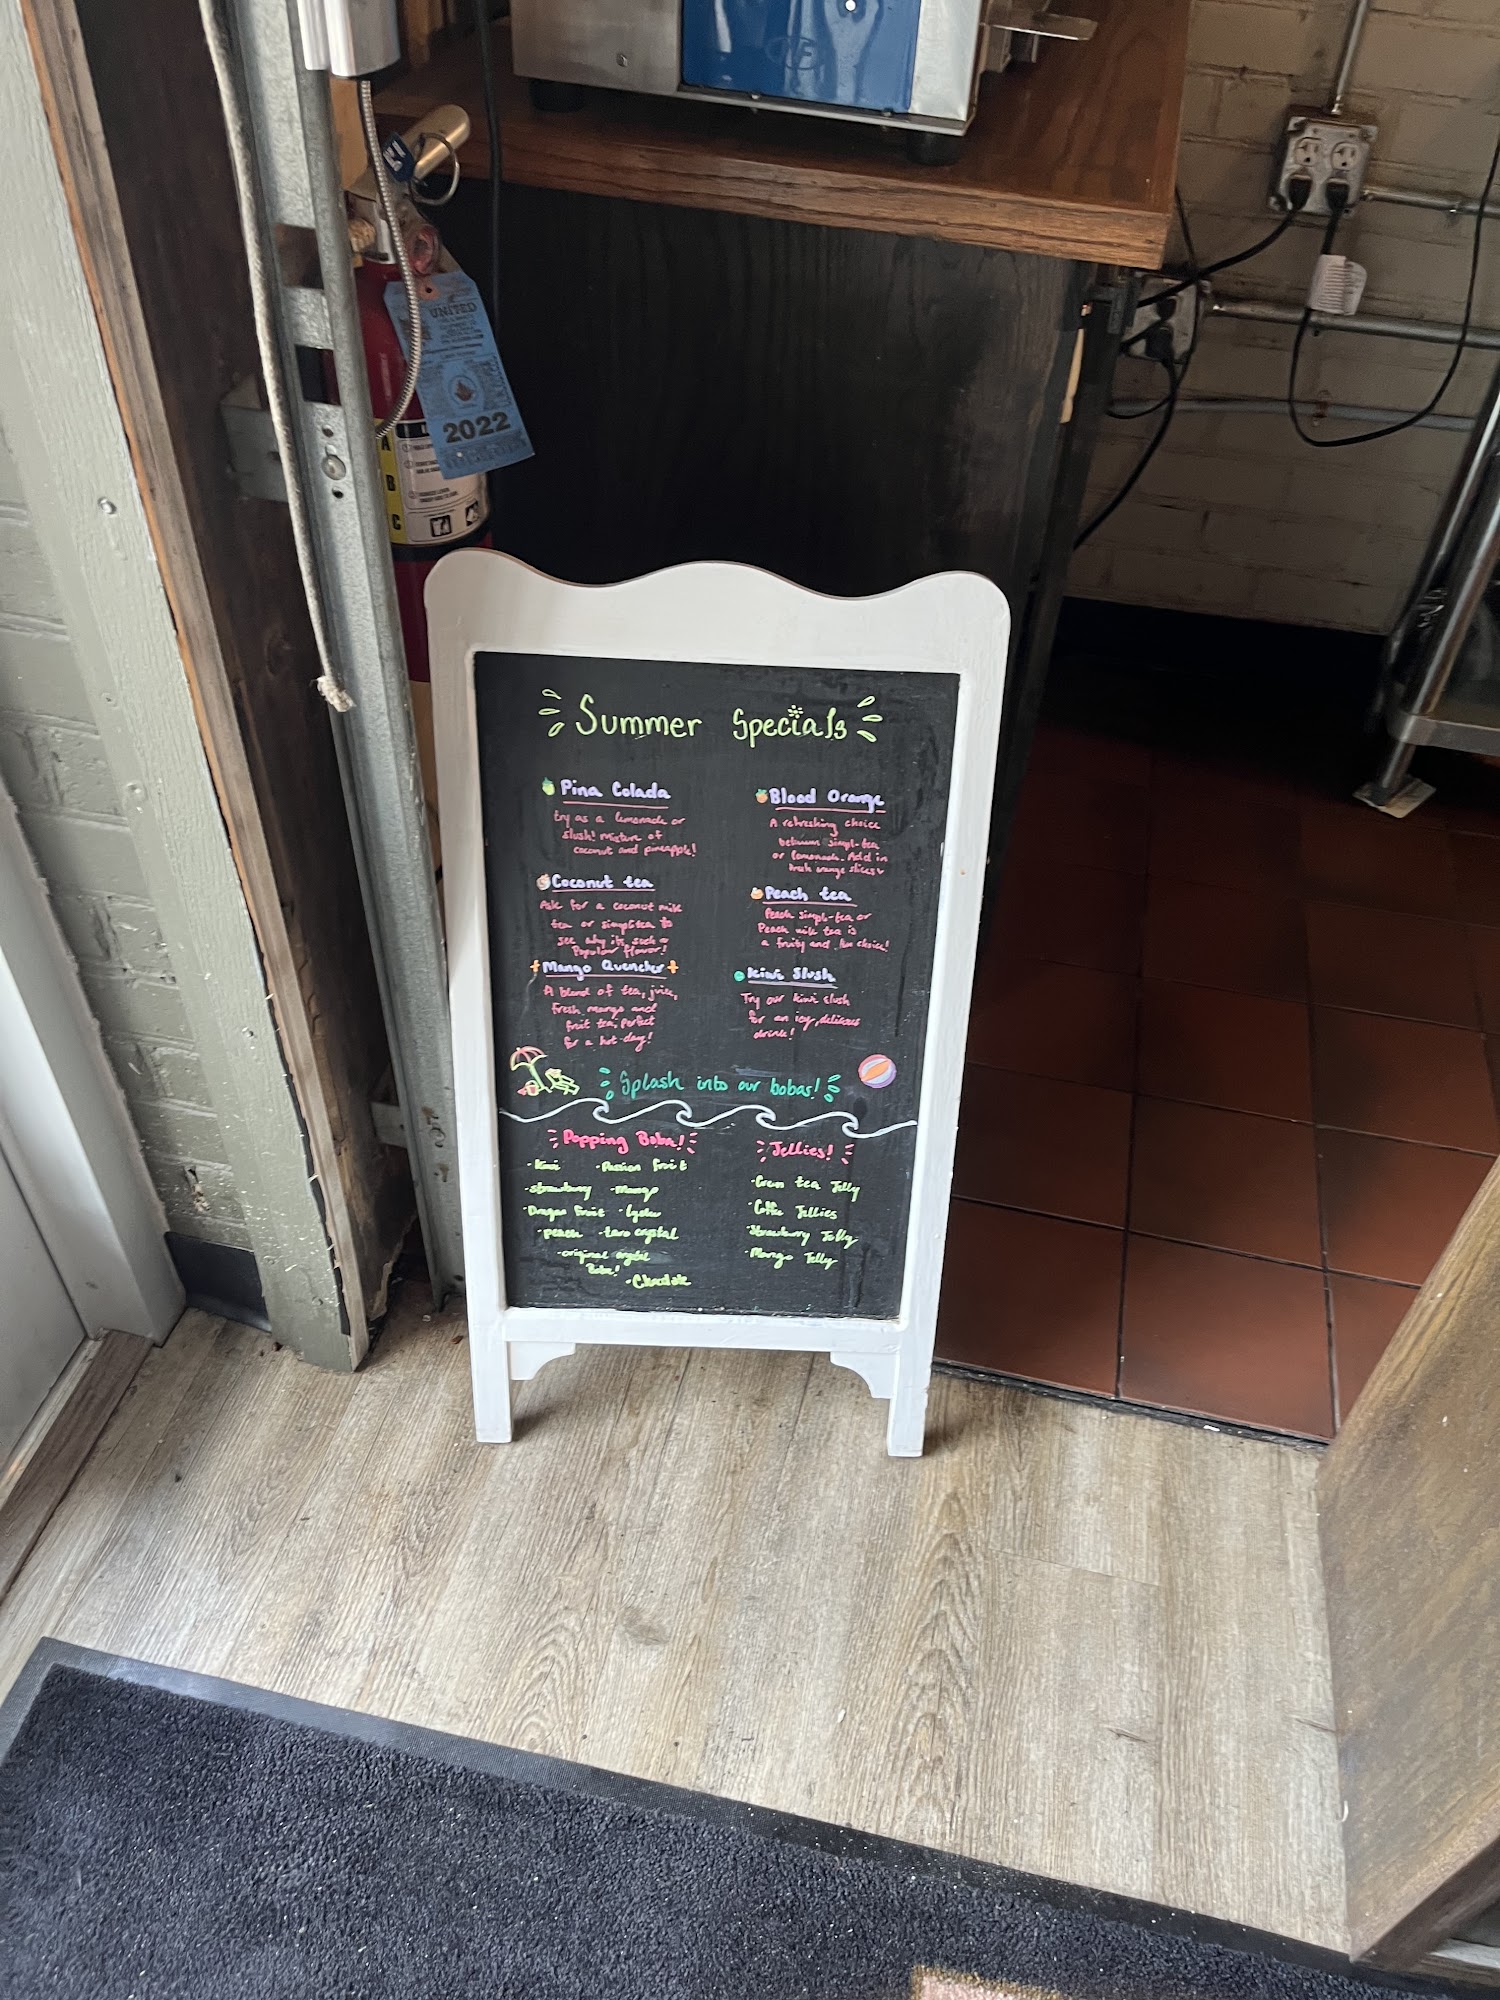 UNITED
2022
A
B
C
Summer Specials
Pina Colada
try as a lemonade or
slush! mixture of
coconut and pineapple!
Coconut tea
Ask for a coconut milk
tea or simpltea to
see why its such a
popular flavor!
Mango Quencher
A blend of tea, juice,
fresh mango and
fruit tea, perfect
for a hot day!
Blood Orange
A refreshing choice
between simpl-tea
or lemonade. Add in
fresh orange slices
Peach tea
Peach simpl-tea or
Peach milk tea is
a fruity and fun choice!
Kiwi Slush
Try our kiwi slush
for an icy, delicious
drink!
Splash into our bobas!
Popping Boba!
· Kiwi · Passion fruit
· Strawberry · Mango
· Dragon Fruit · Lychee
· peach · taro crystal
· original crystal
Boba!
· Chocolate
Jellies!
· Green tea Jelly
· Coffee Jellies
· Strawberry Jelly
· Mango Jelly